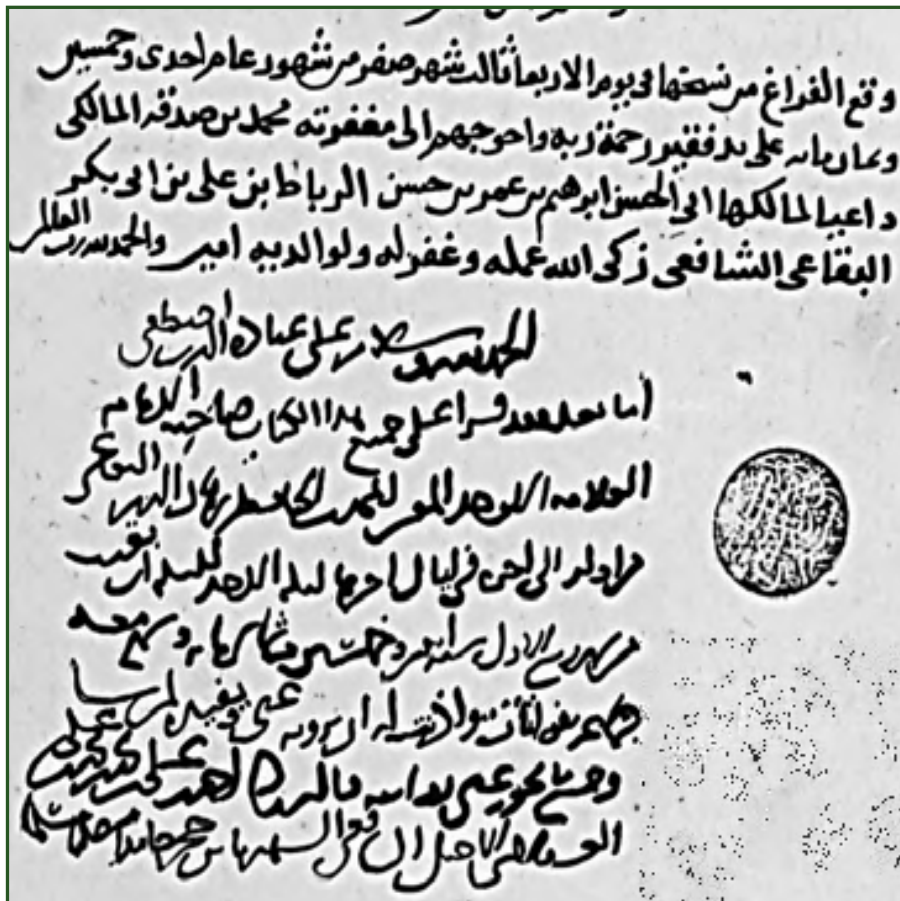 وقع الفراغ من نسختها في يوم الاربعا ثالث شهر صفر من شهور عام احدى وخمسين
وثمان مايه على يد فقير رحمة ربه واحوجهم الى مغفرته محمد بن صدقه المالكي
داعيا لمالكها ابي الحسن ابرهيم بن عمر بن حسن الرباط ابن علي بن ابي بكر
البقاعي الشافعي زكى الله عمله وغفر له ولوالديه امين والحمد لله رب العالمين
الحمد لله وسلام على عباده الذين اصطفى
اما بعد فقد قرا علي جميع هذا الكتاب صاحبه الامام
العلامه الاوحد الحافظ برهان الدين البقاعي
من اوله الى اخره في ليال اخرها ليله الاحد
من شهر ربيع الاول سنه وخمسين وثمان مايه وسمع معه
جماعه واذنت له ان يرويه عني
وجميع ما يجوز عني روايته قاله احمد بن علي بن محمد بن محمد بن علي
العسقلاني الاصل الشهير بابن حجر حامدا مصليا مسلما